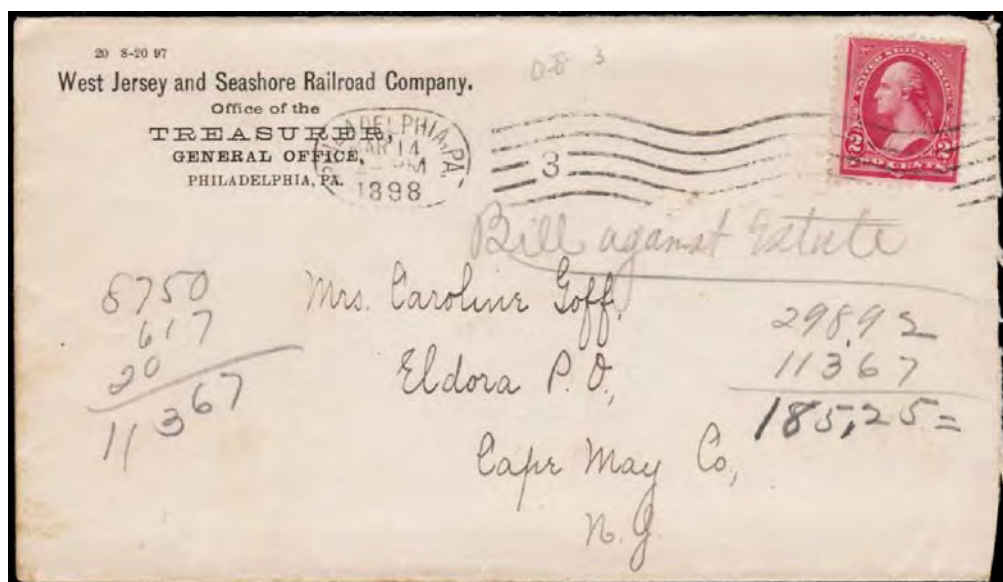 20 8-20 97
West Jersey and Seashore Railroad Company.
Office of the
TREASURER,
GENERAL OFFICE,
PHILADELPHIA, PA.
PHILADELPHIA, PA.
MAR 14
PM
1898
3
UNITED STATES POSTAGE
2 2
TWO CENTS
Bill against Estate
Mrs. Caroline Goff,
Eldora P.O.,
Cape May Co.,
N.J.
8750
617
20
11367
298,92
11367
185,25=